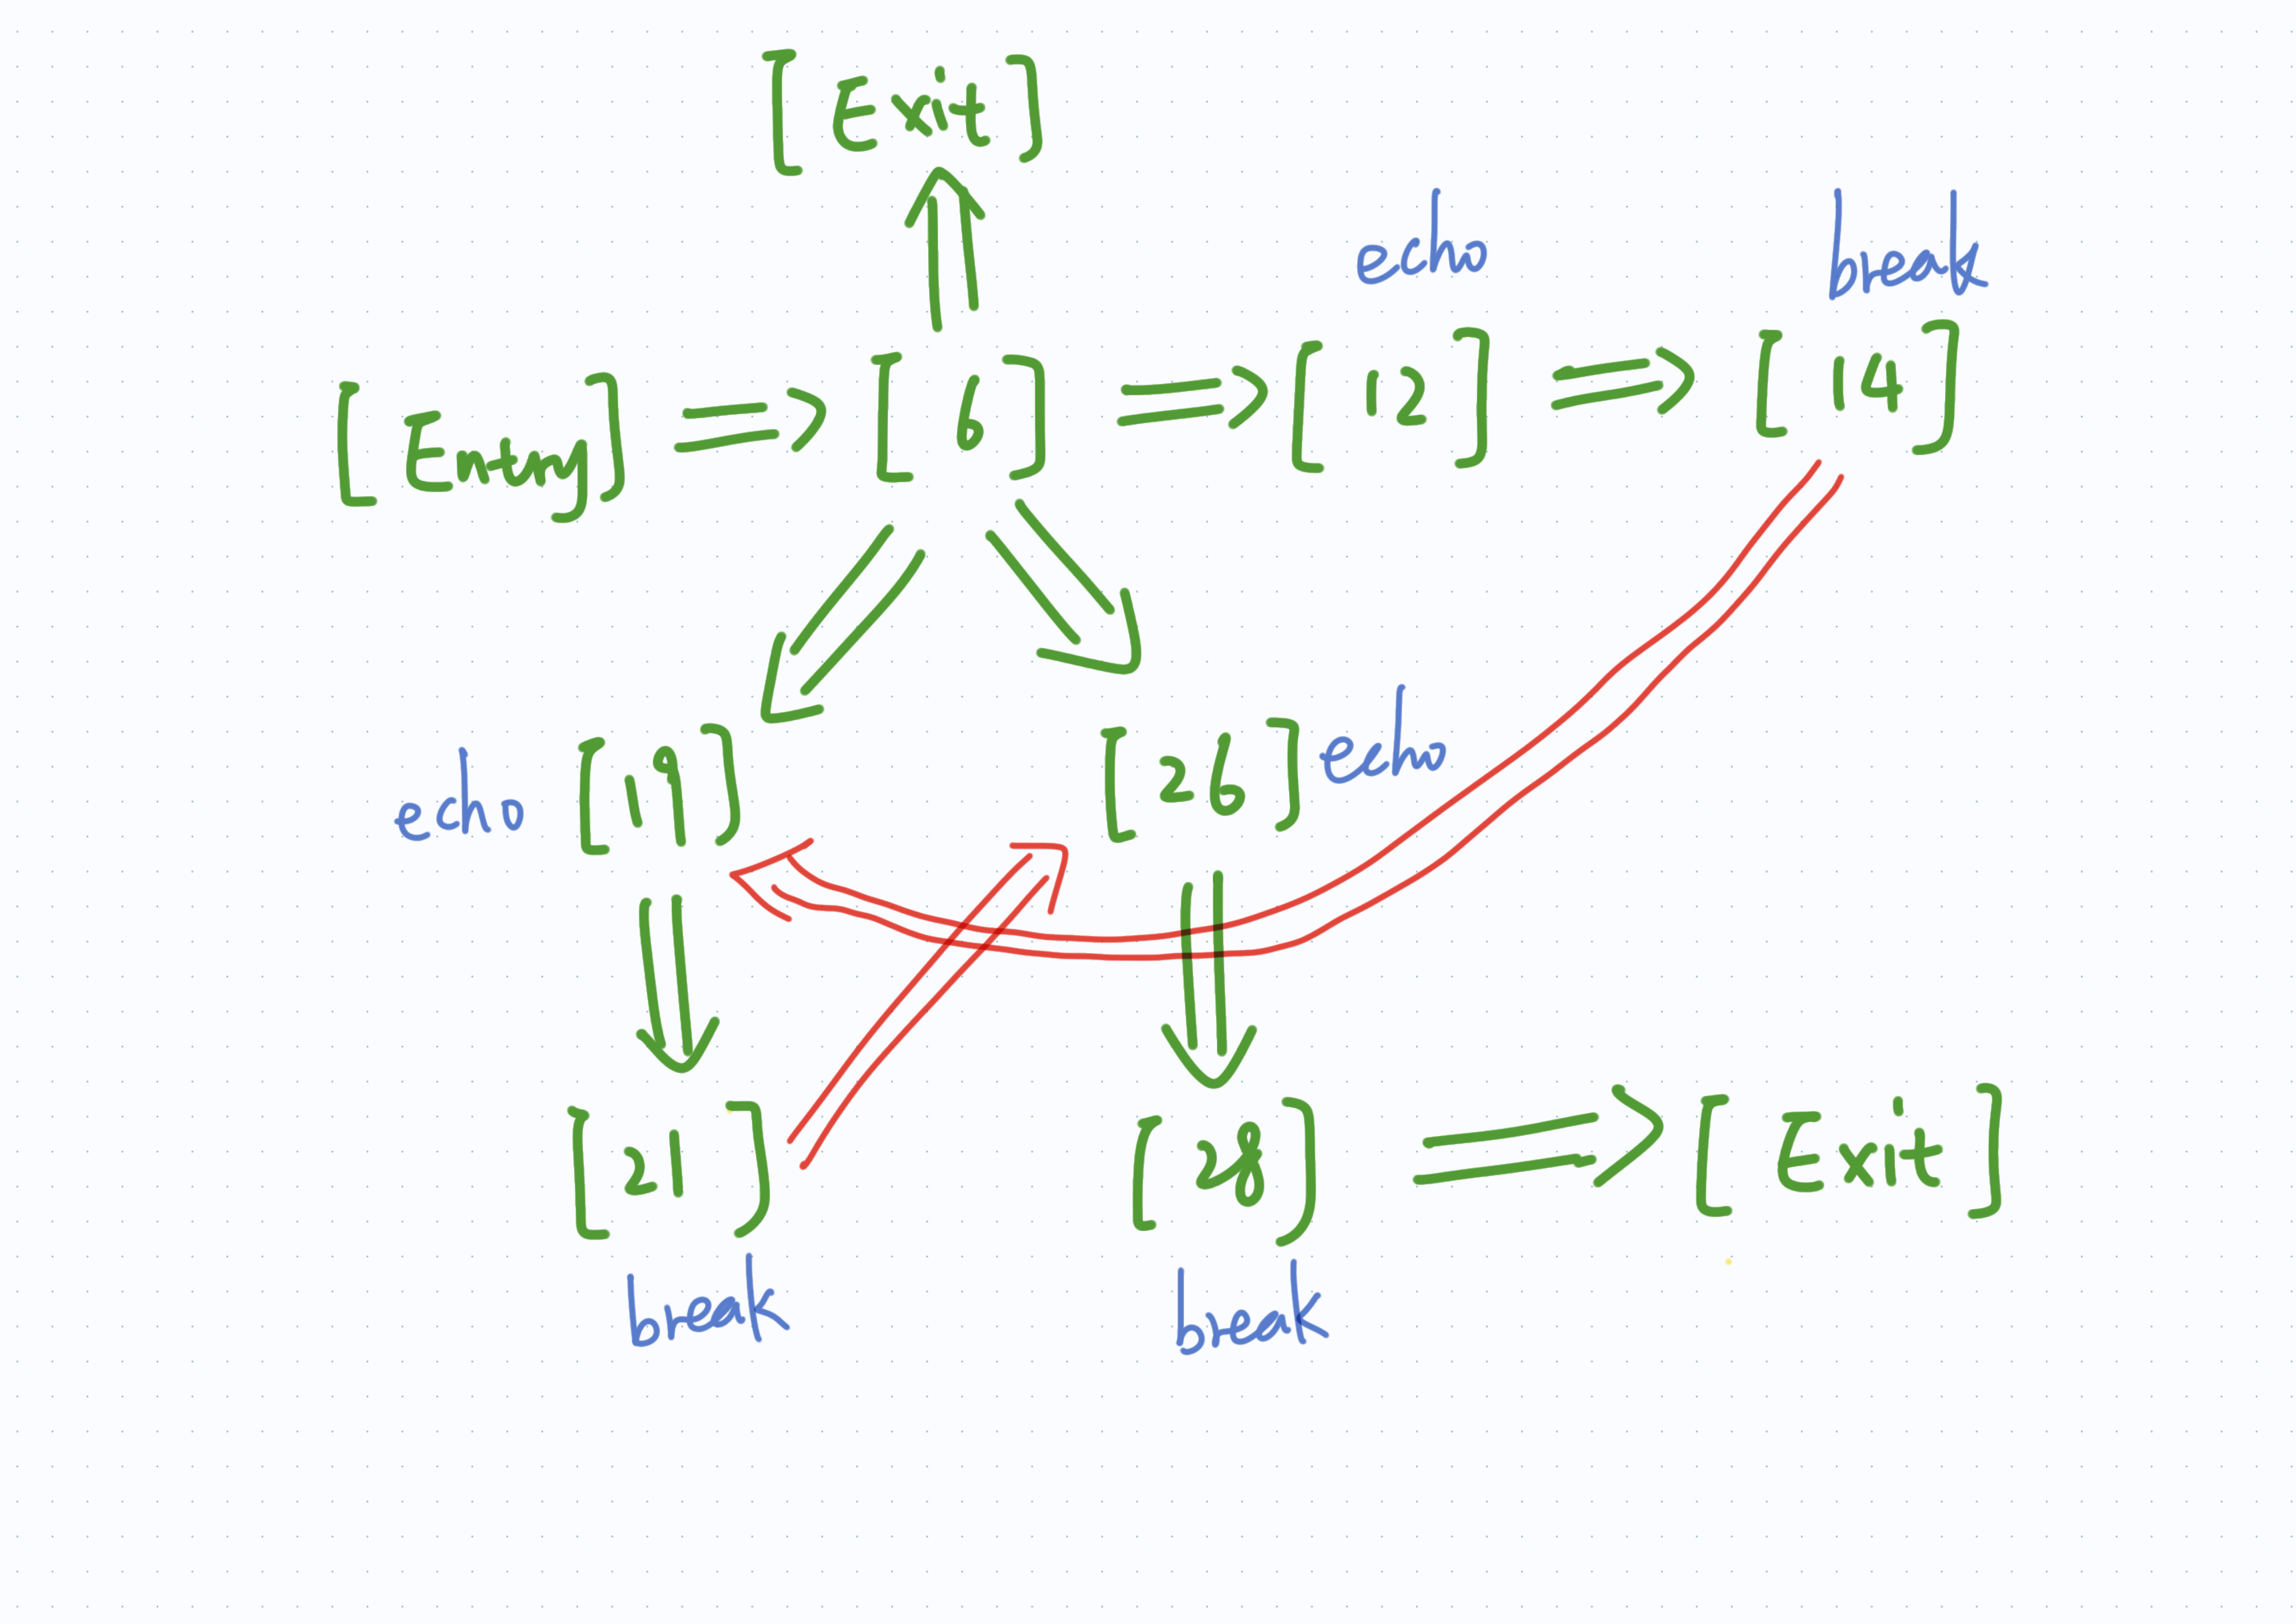 [Exit]
echo
break
[Entry] => [6] => [12] => [14]
echo [19]
[26] echo
[21]
[28] => [Exit]
break
break